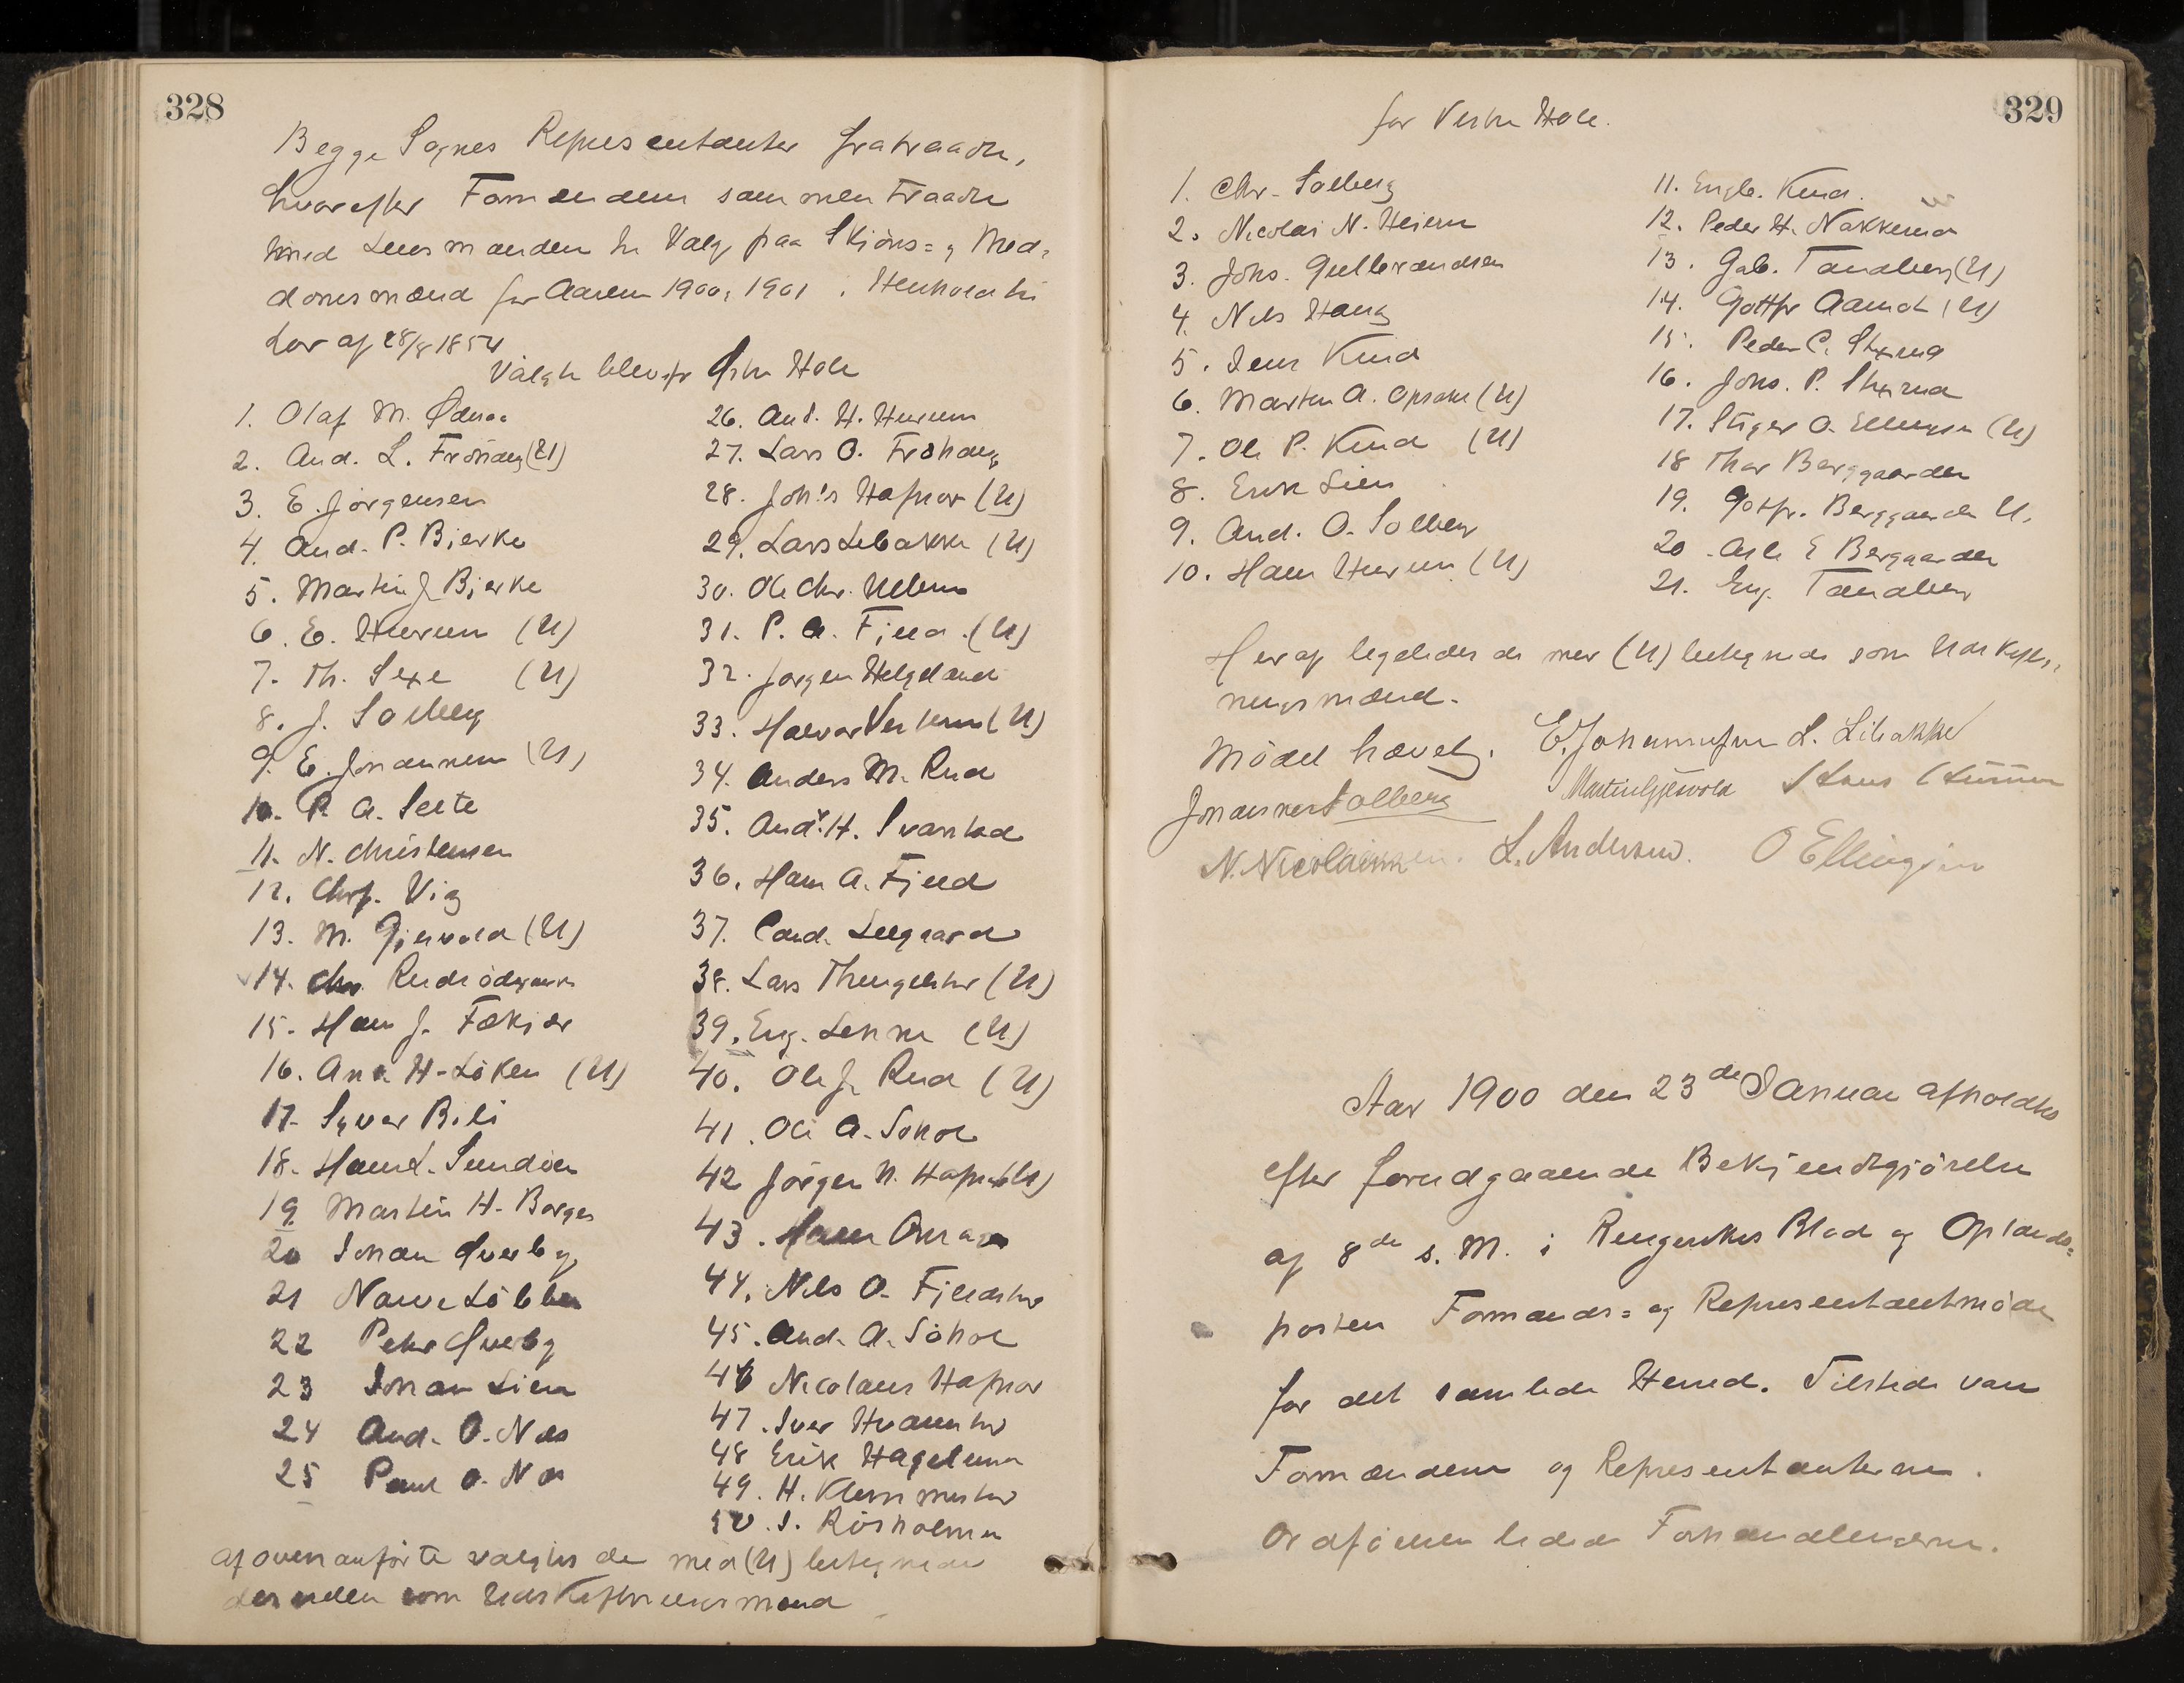 328
Begge Sognes Representanter fratraadte,
hvorefter Formændene sammentraadte
med Lensmanden til Valg paa Skjöns= og Med=
domsmænd for Aarene 1900 og 1901 i Henhold til
Lov af 28/8 1854
Valgte blev for Østre Hole
1. Olaf M.
2. And. L. Fröhaug (U)
3. E. Jörgensen
4. And. P. Bjerke
5. Martin J Bjerke
6. E. Hurum (U)
7. Th. Sexe (U)
8. J. Solberg
9. E. Johannesen (U)
10. P. A. Sætre
11. N. Christensen
12. Chrf. Vig
13. M. Gjesvold (U)
14. Chr. Rudsödegaard
15. Hans J. Fækjær
16. And H. Löken (U)
17. Syver Bili
18. Hans L. Sundöen
19. Martin H. Borgen
20 Johan Øverby
21 Narve Löbben
22 Peter Øverby
23 Johan Lien
24 And. O. Næs
25 Paul O. Næs
26. And. H. Hurum
27. Lars O. Fröhaug
28. Joh's Hafnor (U)
29. Lars Libakke (U)
30. Ole Chr. Ullern
31. P. A. Fjeld (U)
32. Jörgen Helgeland
33. Halvor Vestern (U)
34. Anders M. Rud
35. Andr. H. Svarstad
36. Hans A. Fjeld
37. Cand. Leegaard
38. Lars Thengelstue (U)
39. Eng. Lehne (U)
40. Ole J. Rud (U)
41. Ole A. Söhol
42 Jörgen N. Hafnor (U)
43. Hans Onsager
44. Nils O. Fjeldstue
45. And. A. Söhol
46 Nicolaus Hafnor
47. Iver Hvamstue
48 Erik Hagelund
49. H. Klemmestue
50. S. Rösholmen
Af ovenanförte valgtes de med (U) betegnede
desuden som Udskiftningsmænd
329
for Vestre Hole.
1. Chr. Solberg
2. Nicolai N. Heiern
3. Johs. Gulbrandsen
4. Nils Haug
5. Jens Krud
6. Martin A. Opsahl (U)
7. Ole P. Krud (U)
8. Erik Lien
9. And. O. Solberg
10. Hans Hurum (U)
11. Engb. Krud.
12. Peder H. Nakkerud
13. Gulb. Tandberg (U)
14. Gottfr Aamot (U)
15. Peder C. Skjærud
16. Johs. P. Skjærud
17. Stiger O. Ellingsen (U)
18 Thor Berggaarden
19. Gotfr. Berggaarden U.
20. Asle E Bergaarden
21. Eng. Tandberg
Heraf ligeledes de med (U) betegnede som Udskift=
ningsmænd.
Mödet hævet. E. Johannesen L. Libakke
Johannes Solberg Martin Gjesvold
N. Nicolaisen. L. Andersen. O Ellingsen
Aar 1900 den 23de Januar afholdtes
efter forudgaaende Bekjendtgjörelse
af 8de s. M. i Ringerikes Blad og Oplands=
posten Formands= og Representantmöde
for det samlede Herred. Tilstede var
Formændene og Representanterne.
Ordföreren ledede Forhandlingerne.